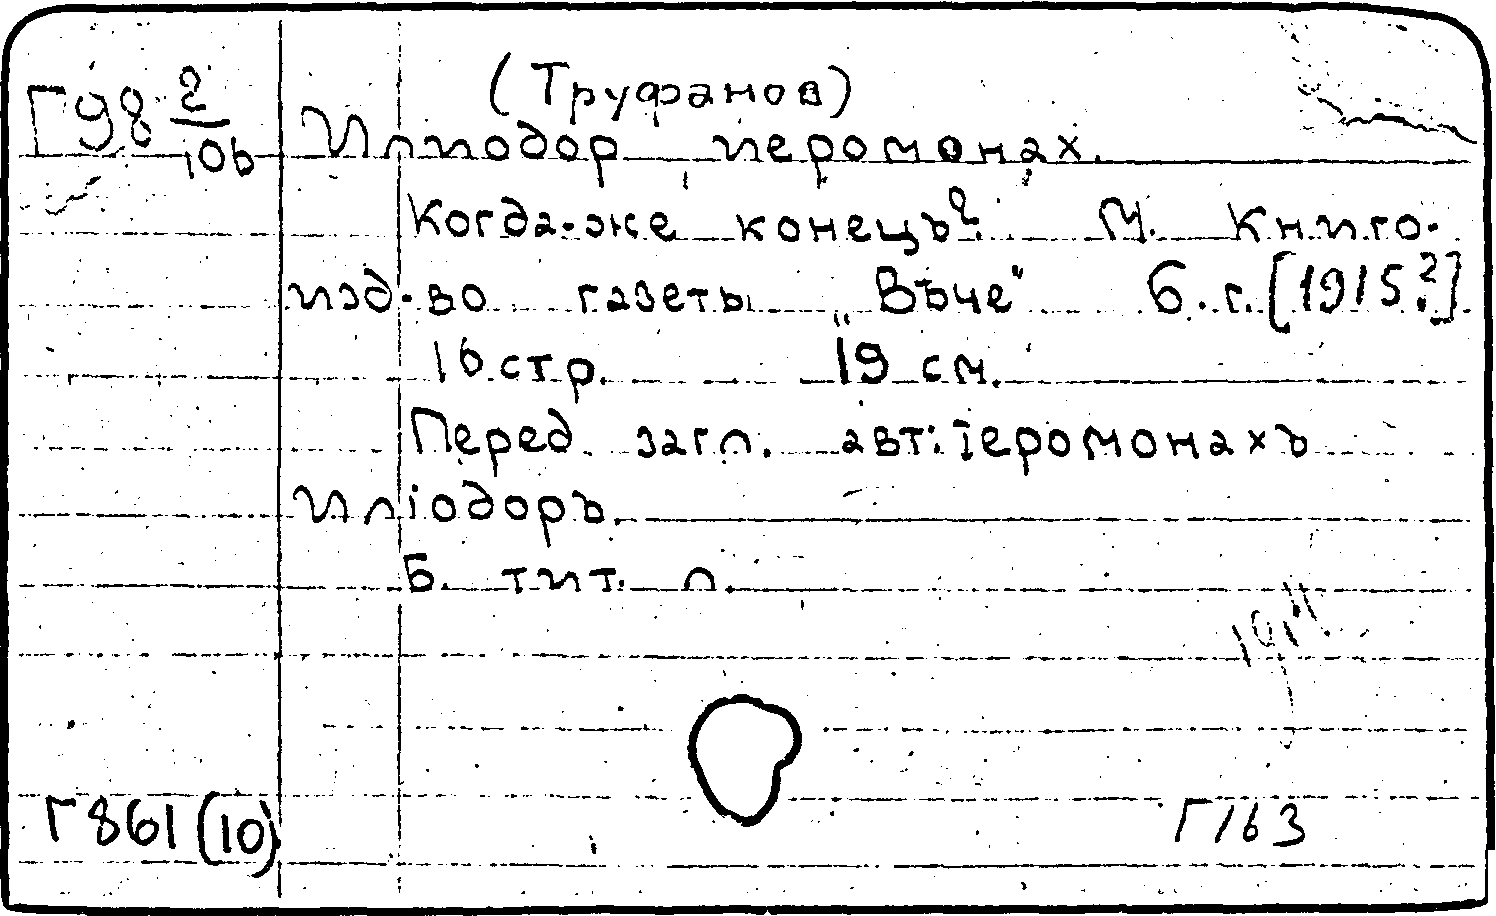 (Труфанов)
Г98 2/106 Илиодор, иеромонах.
Когда-же конецъ? М. Книго-
изд-во газеты „Вѣче“ б.г. [1915?]
16 стр. 19 см.
Перед загл. авт: Iеромонахъ
Иліодоръ.
Б. тит. л.
Г861(10)
Г163